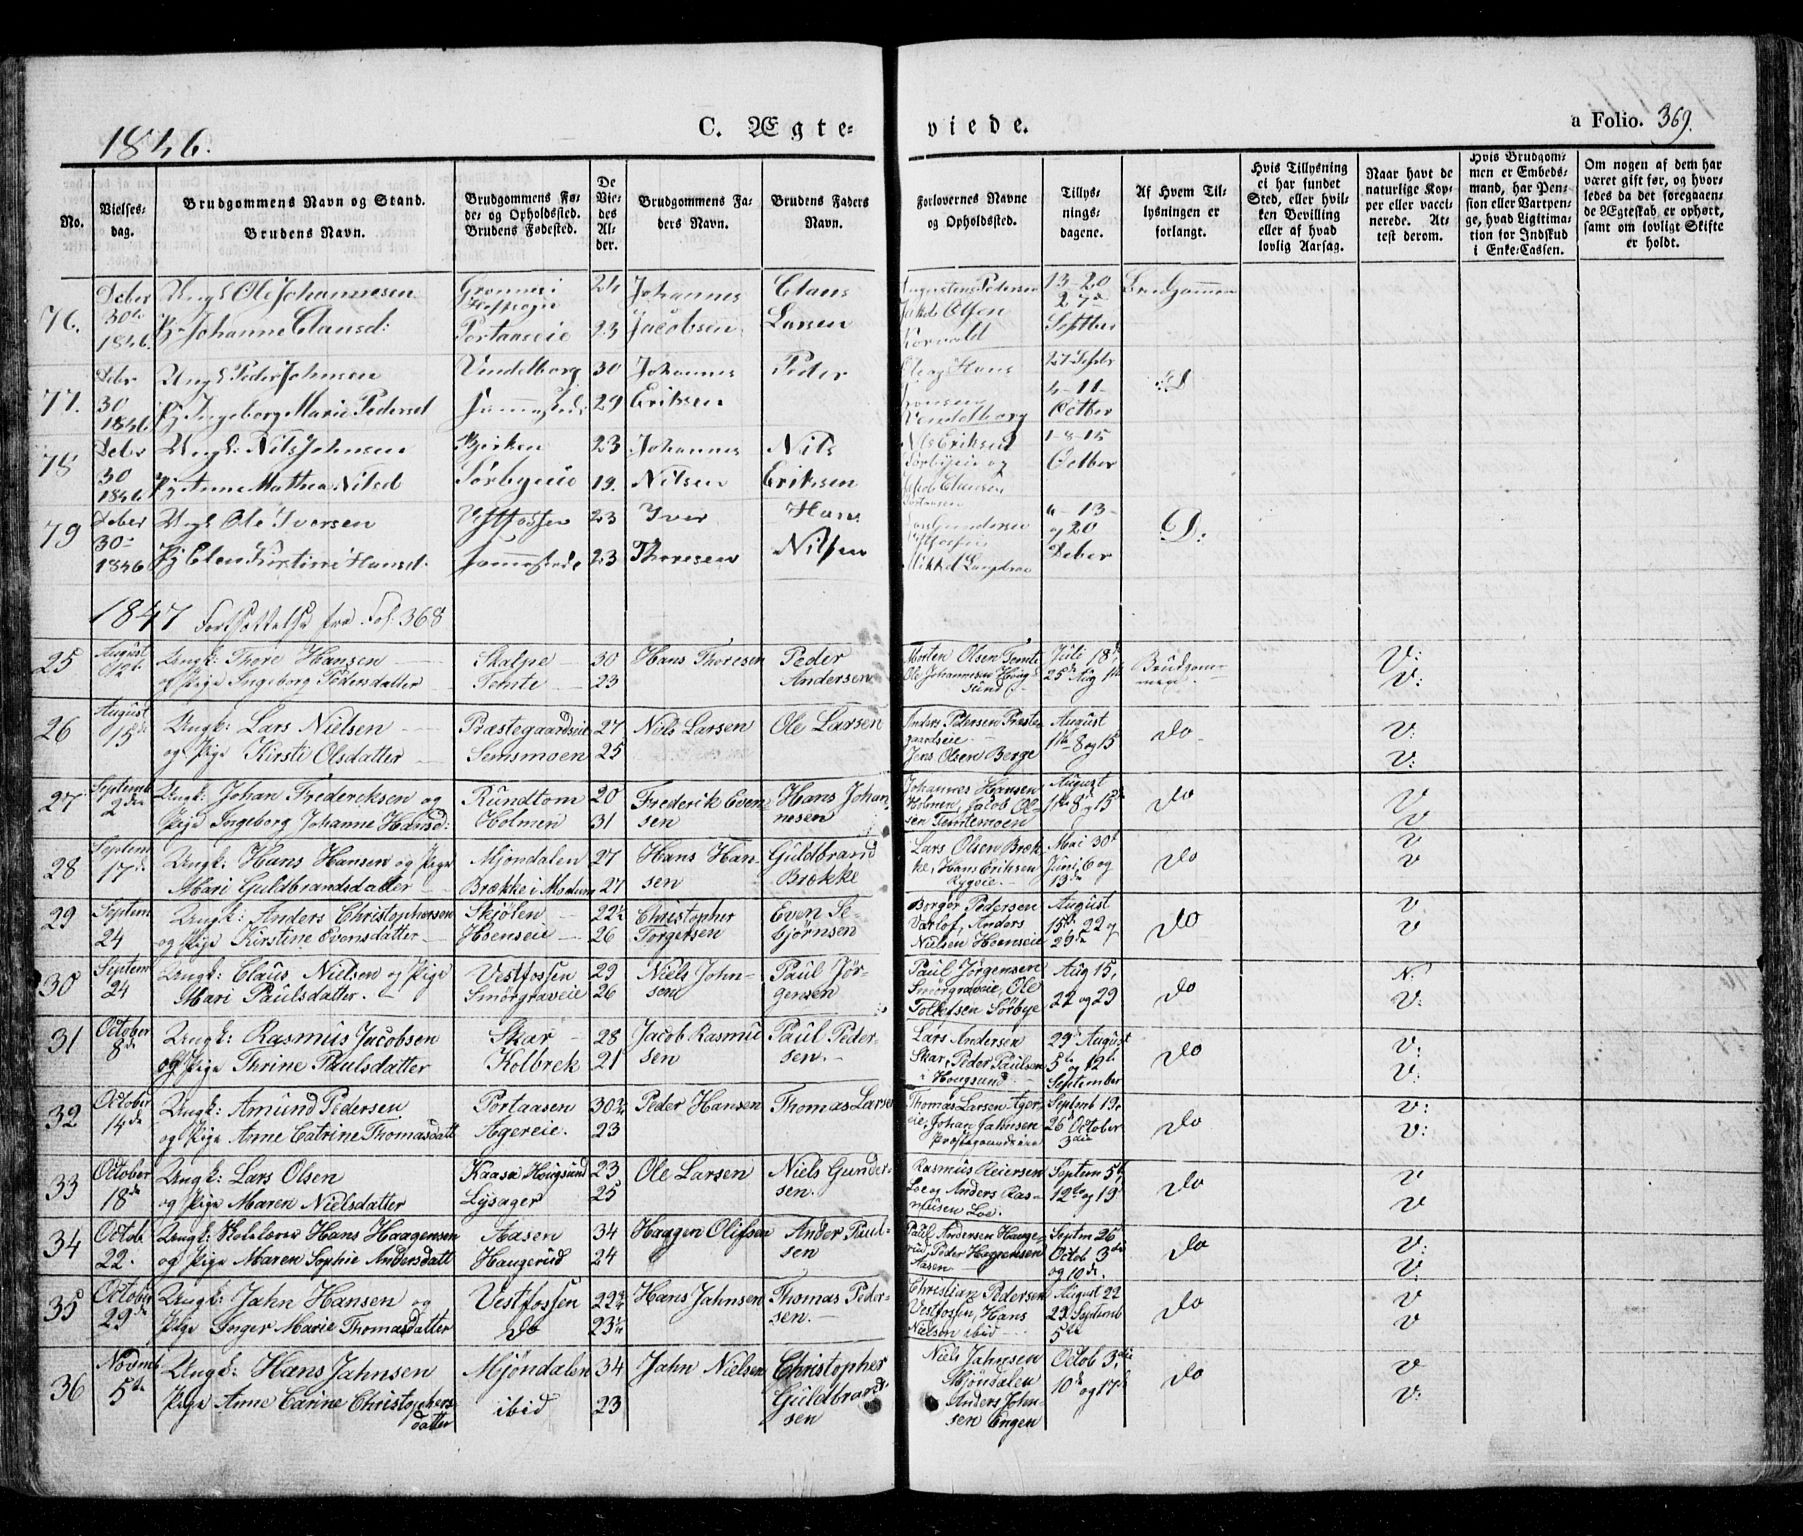 1846.
C. Ægte-
viede.
a Folio. 369.
No.
Vielses-
dag.
Brudgommens Navn og Stand.
Brudens Navn.
Brudgommens Fø-
de- og Opholdssted.
Brudens Fødested.
De
Vie-
des
Al-
der.
Brudgommens Fa-
ders Navn.
Brudens Faders
Navn.
Forlovernes Navne
og Opholdssted.
Tillys-
nings-
dagene.
Af Hvem Til-
lysningen er
forlangt.
Hvis Tillysning
ei har fundet
Sted, eller hvil-
ken Bevilling
eller af hvad
lovlig Aarsag.
Naar havt de
naturlige Kop-
per eller vacci-
nerede. At-
test derom.
Hvis Brudgom-
men er Embeds-
mand, har Pen-
sion eller Vartpen-
ge, hvad Ligitima-
tion for Indskud
i Enke-Cassen.
Om nogen af dem har
været gift før, og hvor-
ledes da det foregaaen-
de Ægteskab er ophørt,
samt om lovligt Skifte
er holdt.
76.
Deber
30te
1846.
Ungk Ole Johannesen
Pg Johanne Clausd:
Portaaseie
24
23
Johannes
Jacobsen
Claus
Larsen
13-20
27de
Septber
Brudgommen
77.
Deber
30
1846
Ungk Peder Johnsen
Pg Ingeborg Marie Pedersd
Vendelborg
Sammesteds
30
29
Johannes
Eriksen
Peder
27 Septbr
4-11-
Octber
D
78
Deber
30
1846
Ungk: Nils Johnsen
Pg Anne Mathea Nilsd
Birken
Sørbyeie
23
19.
Johannes
Nilsen
Nils
Eriksen
Nils Eriksen
Sørbyeie og
1-8-15
Octber
79
Deber
30-
1846
Ungk Ole Iversen
Pg Elen Kirstine Hansd.
Vestfossen
Sammestede
23
23
Iver
Thoresen
Hans
Nilsen
6-13-
og 20
Deber
D:
1847 Fortsættelse fra Fol. 368
25
August
12te
Ungk: Thore Hansen
og Pige Ingeborg Pedersdatter
Skalpe
Temte
30
23
Hans Thoresen
Peder
Andersen
Morten Olsen Temte
Ole Johannesen Houg-
sund
Juli 18de
25de Aug 1te
Brudgom-
men.
V:
V:
26
August
15de
Ungk: Lars Nielsen
og Pige Kirsti Olsdatter
Præstegaardseie
Semsmoen
27
25
Niels Larsen
Ole Larsen
Anders Pedersen Præste-
gaardseie
Jens Olsen Berge
August
1te 8 og 15
Do
V:
V:
27
Septemb
2den
Ungk: Johan Fredericksen og
Pige Ingeborg Johanne Hansd:
Rundtom
Holmen
20
31
Frederik Even-
sen
Hans Johan-
nesen
Johannes Hansen
Holmen, Jacob Ol-
sen Temtemoen
August
1te 8 og 15de
Do
V
V
28
Septem
17de
Ungk: Hans Hansen og Pige
Mari Guldbrandsdatter
Mjøndalen
Brække i Modum
27
27
Hans Han-
sen
Guldbrand
Brække
Lars Olsen Bræk-
ke, Hans Eriksen
Rygeie.
Mai 30te
Juni 6 og
13de
Do
V
V
29
Septem
24
Ungk: Anders Christophersen
og Pige Kirstine Evensdatter
Skjølen
Hoenseie
22½
26
Christopher
Torgersen
Even Se-
bjørnsen
Borger Pedersen
Varlof, Anders
Nielsen Hoenseie
August
15de 22 og
29de
Do
V
V
30
Septem
24
Ungk: Claus Nielsen og Pige
Mari Paulsdatter.
Vestfossen
Smørgraveie
29
26
Niels John-
sen
Paul Jør-
gensen
Paul Jørgensen
Smørgraveie, Ole
Tolletsen Sørbye
Aug 15,
22 og 29
Do
N.
V:
31
October
8de
Ungk: Rasmus Jacobsen
og Pige Thrine Paulsdatter
Skar
Kolbrek
28
21
Jacob Rasmus-
sen
Paul Peder-
sen.
Lars Andersen
Skar, Peder Paulsen
i Hougsund
29de August
5te og 12te
September
Do
V:
V:
32
October
14de
Ungk: Amund Pedersen
og Pige Anne Catrine Thomasdatt
Portaasen
Agereie.
30¾
23
Peder Hansen
Thomas Larsen
Thomas Larsen Ager-
eie, Johan Jahnsen
Septemb 19,
26 October
3die
Do
V:
V:
33
October
18de
Ungk: Lars Olsen
og Pige Maren Nielsdatter
Kaasa Hougsund
Lysager
23
25
Ole Larsen
Niels Gunder-
sen.
Rasmus Reiersen
Loe og Anders Ras-
musen Loe.
Septem 5te
12te og 19de
Do
V
V
34
Octob.
22.
Ungk: Skolelærer Hans Haagensen
og Pige Maren Sophie Andersdatt
Aasen
Haugerud
34
24
Haagen Olifsen
Ander Paul-
sen
Paul Andersen Hauge-
rud, Peder Haagensen
Aasen
Septm 26
Octob 3die
og 10de.
Do
V:
V:
35
October
29de
Ungk: Jahn Hansen og
Pige Inger Marie Thomasdatter
Vestfossen
Do
22¾
23¼
Hans Jahnsen
Thomas Peder-
sen.
Christian Pedersen
Vestfossen, Hans
Nielsen ibid
August 22
29. Septemb
5te
Do
V
V
36
Novmb
5te
Ungk: Hans Jahnsen
Pige Anne Carine Christophers-
datter
Mjøndalen
ibid
34
23
Jahn Nielsen
Christopher
Guldbrand-
sen
Niels Jahnsen
Mjøndalen
Anders John-
sen Engen
Octob 3die
10de og 17de
Do
V
V: